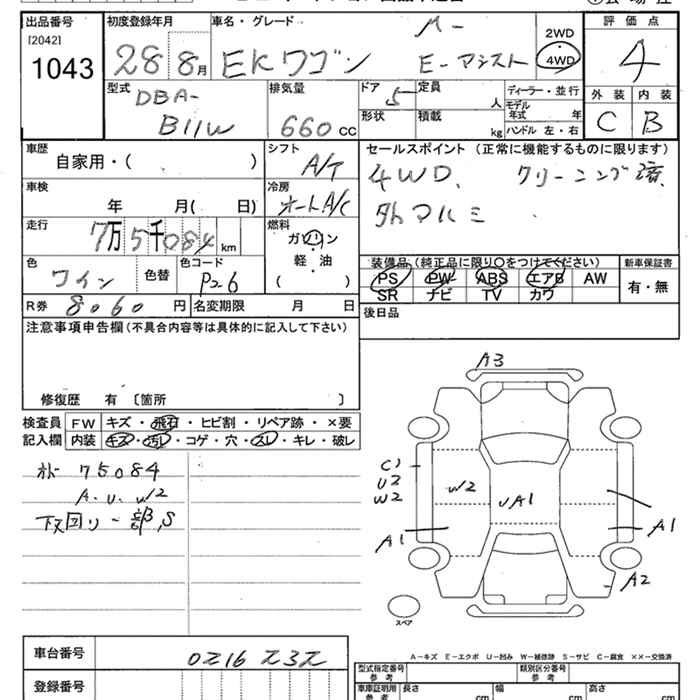 出品番号 初度登録年月 車名・グレード 評価点
[2042]
1043 28 8月 EKワゴン E-アシスト 2WD 4WD 4
型式 DBA- B11W
排気量 660 CC
ドア 5 定員 人
形状 積載 kg
ディーラー・並行
モデル年式 年
ハンドル 左・右
外装 内装
C B
車歴 自家用・( )
シフト A/T
車検 年 月( 日)
冷房 オートA/C
走行 7万5千084km
燃料 ガソリン 軽・油 ( )
色 ワイン 色替 色コード P26
R券 8060円 名変期限 月 日
セールスポイント (正常に機能するものに限ります)
4WD、 クリーニング済
外マルミ
装備品(純正品に限り○をつけてください) 新車保証書
PS PW ABS エアB AW 有・無
SR ナビ TV カワ
後日品
注意事項申告欄(不具合内容等は具体的に記入して下さい)
修復歴 有 〔箇所 〕
検査員 FW キズ・飛石・ヒビ割・リペア跡・×要
記入欄 内装 キズ・汚レ・コゲ・穴・スレ・キレ・破レ
オドー 75084
A.U.W2
下回リ一部S
A3
C1
U2
W2
W2
UA1
A1
A1
A2
スペア
A-キズ E-エクボ U-凹み W-補修跡 S-サビ C-腐食 ××-交換済
車台番号 0216232
登録番号
型式指定番号 参考 類別区分番号 参考
車庫証明用 参考 長さ cm 幅 cm 高さ cm